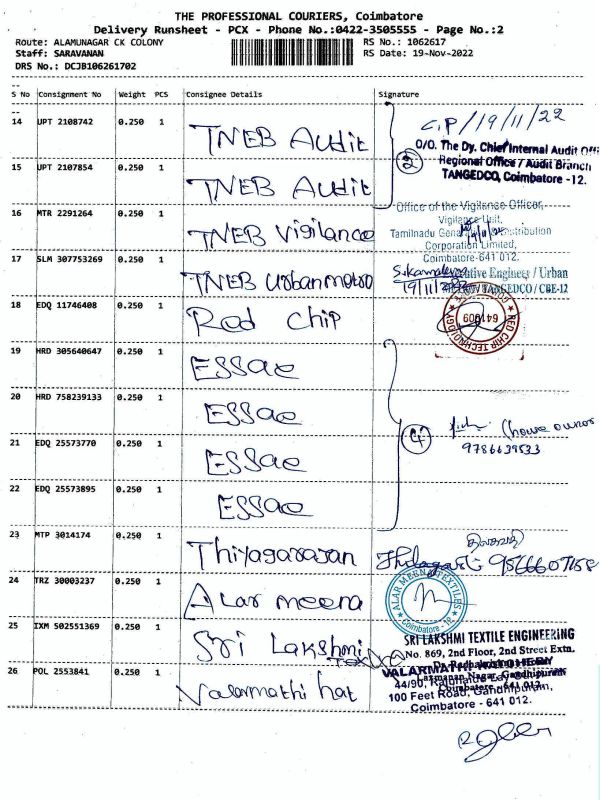 THE PROFESSIONAL COURIERS, Coimbatore
Delivery Runsheet - PCX - Phone No.:0422-3505555 - Page No.:2
Route: ALAMUNAGAR CK COLONY RS No.: 1062617
Staff: SARAVANAN RS Date: 19-Nov-2022
DRS No.: DCJB106261702
S No Consignment No Weight PCS Consignee Details Signature
14 UPT 2108742 0.250 1 TNEB Audit
C.P/19/11/22
O/O. The Dy. Chief Internal Audit Offi
Regional Office / Audit Branch
TANGEDCO, Coimbatore -12.
2
15 UPT 2107854 0.250 1 TNEB Audit
16 MTR 2291264 0.250 1 TNEB Vigilance
Office of the Vigilance Officer,
Vigilance Unit,
Tamilnadu
Corporation Limited,
Coimbatore-641 012.
17 SLM 307753269 0.250 1 TNEB urban metro
Engineer / Urban
TANGEDCO / CBE-12
18 EDQ 11746408 0.250 1 Red Chip
RED CHIP TECHNOLOGY
641009
19 HRD 305640647 0.250 1 ESSae
20 HRD 758239133 0.250 1 ESSae
4
(howe owner
9786639533
21 EDQ 25573770 0.250 1 ESSae
22 EDQ 25573895 0.250 1 ESSae
23 MTP 3014174 0.250 1 Thiyagarajan
24 TRZ 30003237 0.250 1 Alar meena
ALAR MEENA TEXTILES
Coimbatore - 12
25 IXM 502551369 0.250 1 Sri Lakshmi
SRI LAKSHMI TEXTILE ENGINEERING
No. 869, 2nd Floor, 2nd Street Extn.
26 POL 2553841 0.250 1 Valarmathi hat
VALARMATHI
44/90,
100 Feet Road, Gandhipuram,
Coimbatore - 641 012.